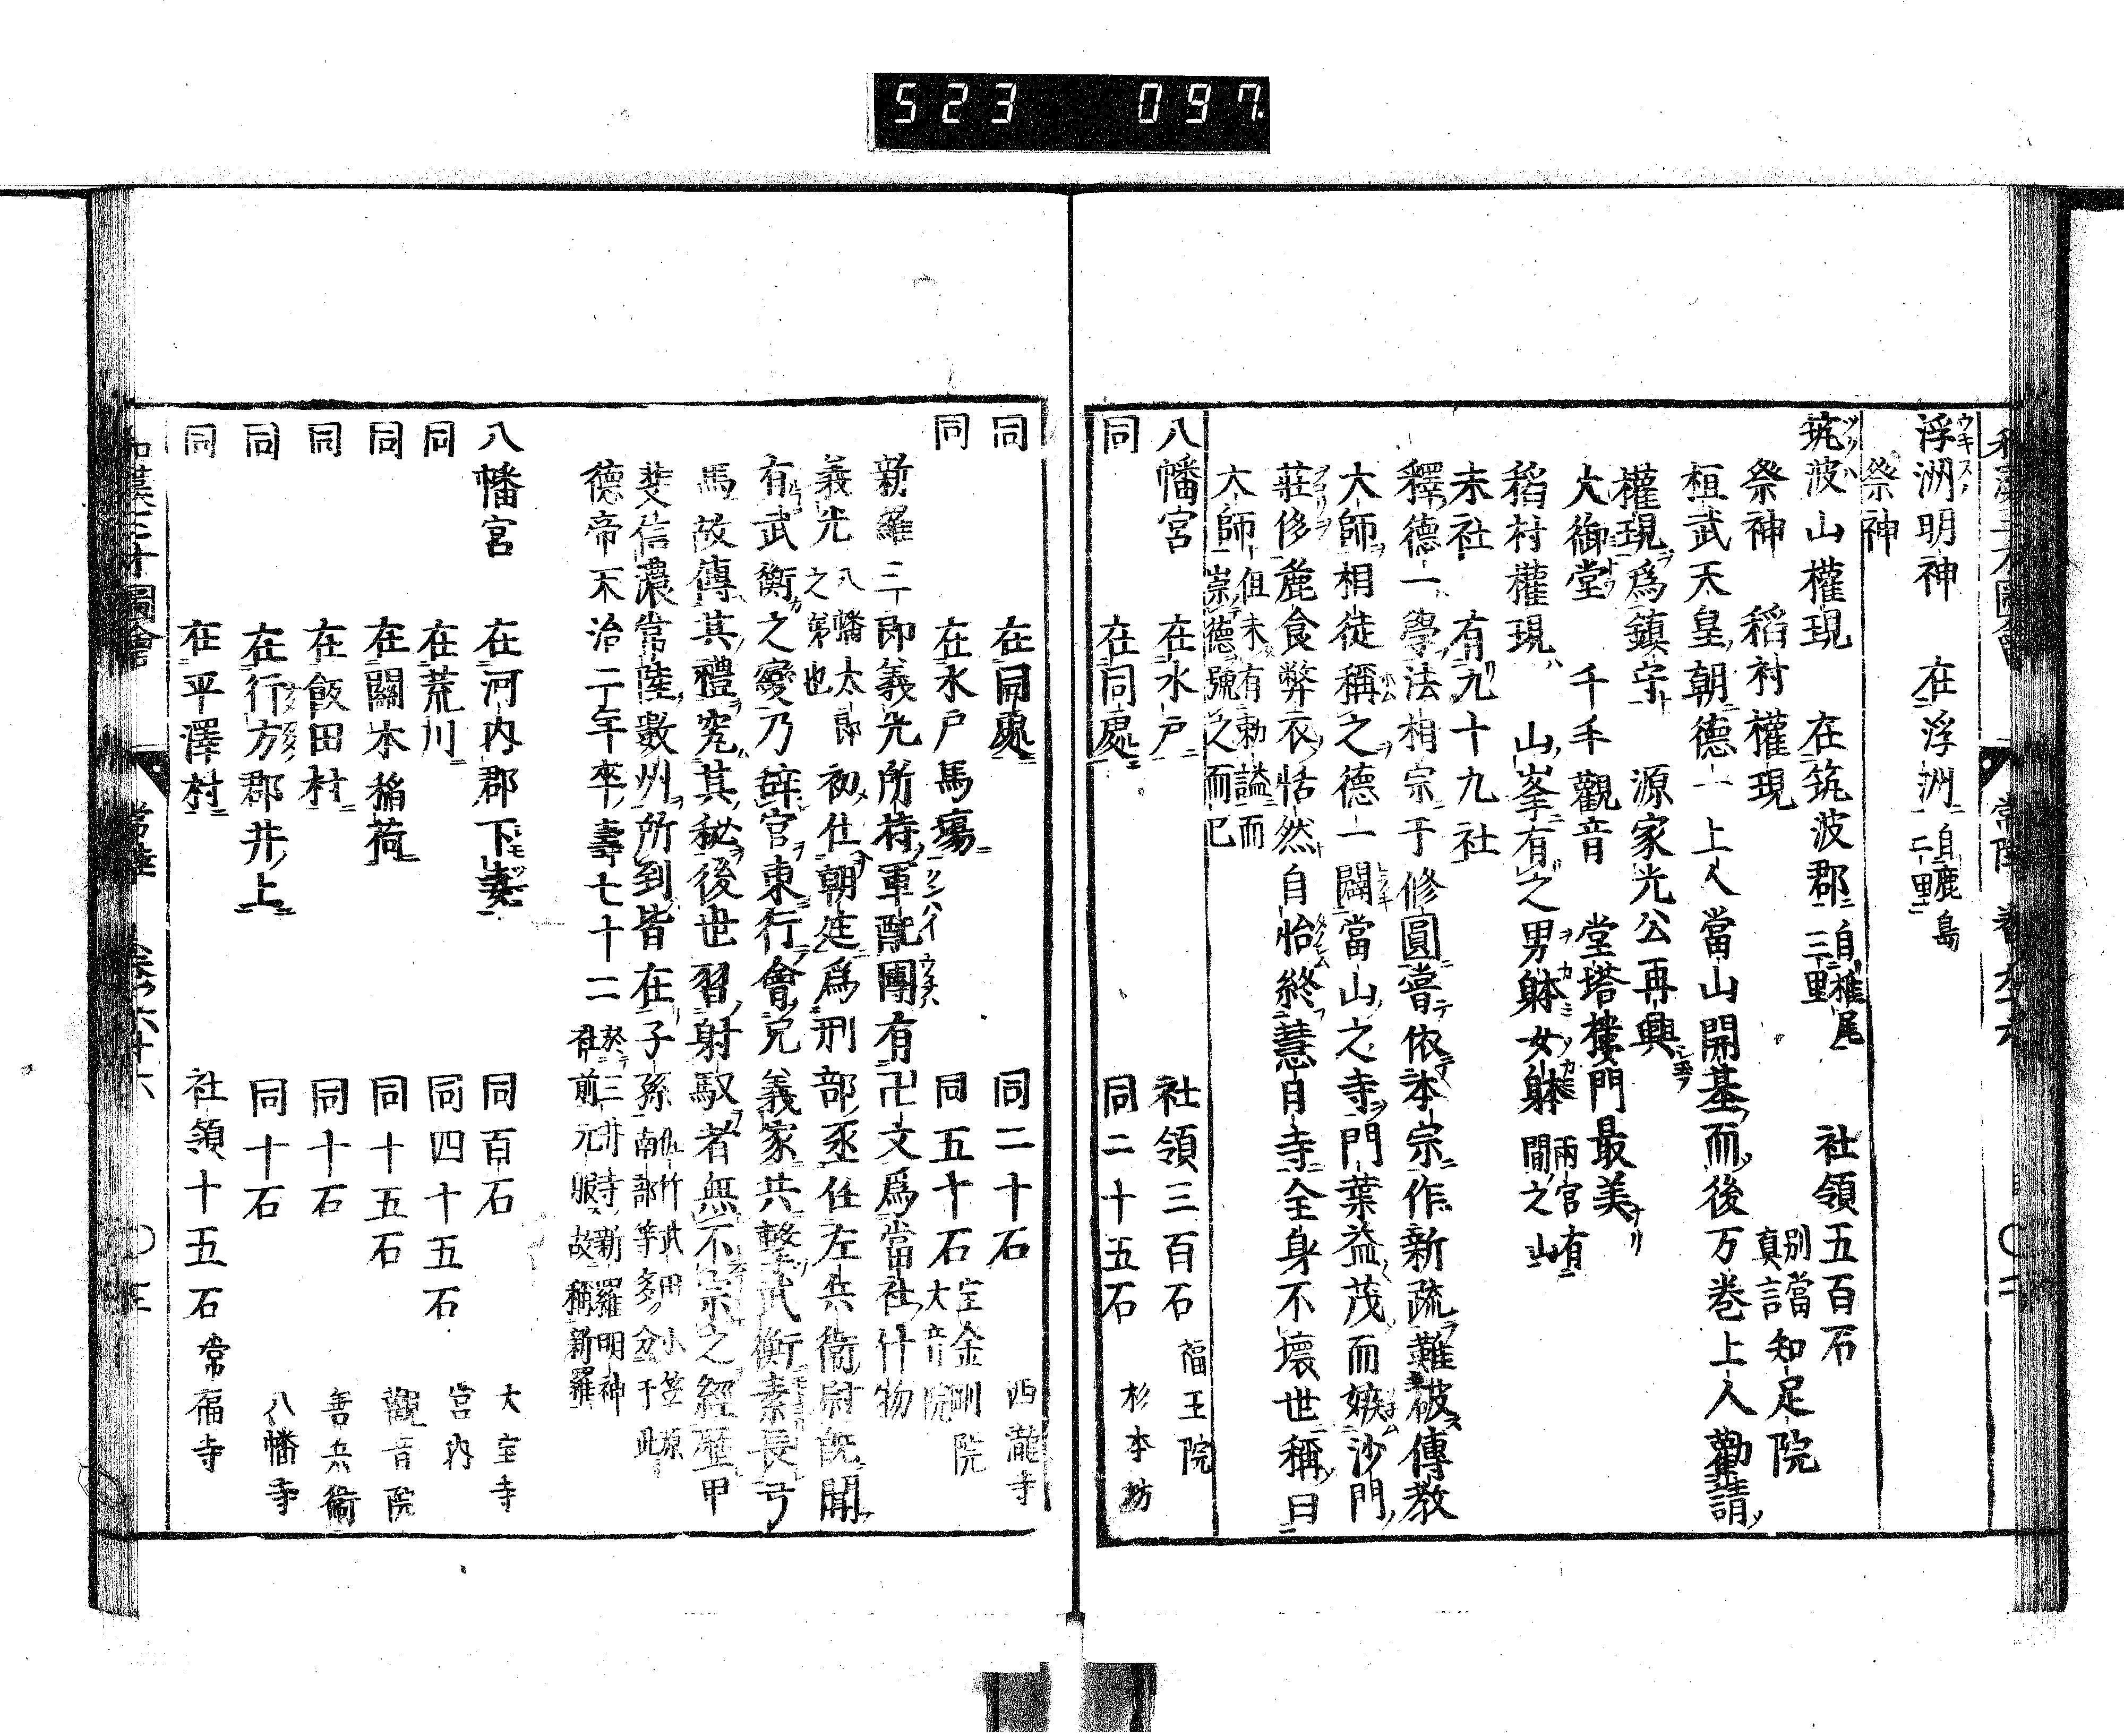 523 097
浮洲明神 在浮洲 自鹿島二里
祭神
筑波山權現 在筑波郡 自椎尾三里 社領五百石
祭神 稻村權現 別當真言 知足院
桓武天皇朝德一上人當山開基而後万巻上人勸請
權現爲鎮守 源家光公再興
大御堂 千手觀音 堂塔樓門最美
稻村權現 山峯有之男躰女躰 兩宮有間之山
末社 有九十九社
釋德一學法相宗于修圓嘗依本宗作新疏難破傳教
大師相徒稱之德一闢當山之寺門葉益茂而嫉沙門
莊侈麁食弊衣恬然自怡終慧日寺全身不壞世稱曰
大師 但未有勅謚而崇德號之而已
八幡宮 在水戶 社領三百石 福王院
同 在同處 同二十五石 杉本坊
同 在同處 同二十石 西瀧寺
同 在水戶馬塲 同五十石 大音院 宝金剛院
新羅三郎義光所持軍配團有卍文爲當社什物
義光 八幡太郎之弟也 初仕朝廷爲刑部丞任左兵衞尉既聞
有武衡之變乃辞官東行會兄義家共擊武衡素長弓
馬故傳其禮究其秘後世習射馭者無不宗之經歷甲
斐信濃常陸數州所到皆在子孫 佐竹武田小笠原南部等多分于此
德帝大治二年卒壽七十二 於三井寺新羅明神社前元服故稱新羅
八幡宮 在河内郡下妻 同百石 大宝寺
同 在荒川 同四十五石 宮内
同 在關本稲荷 同十五石 觀音院
同 在飯田村 同十石 善兵衞
同 在行方郡井上 同十石 八幡寺
同 在平澤村 社領十五石 常福寺